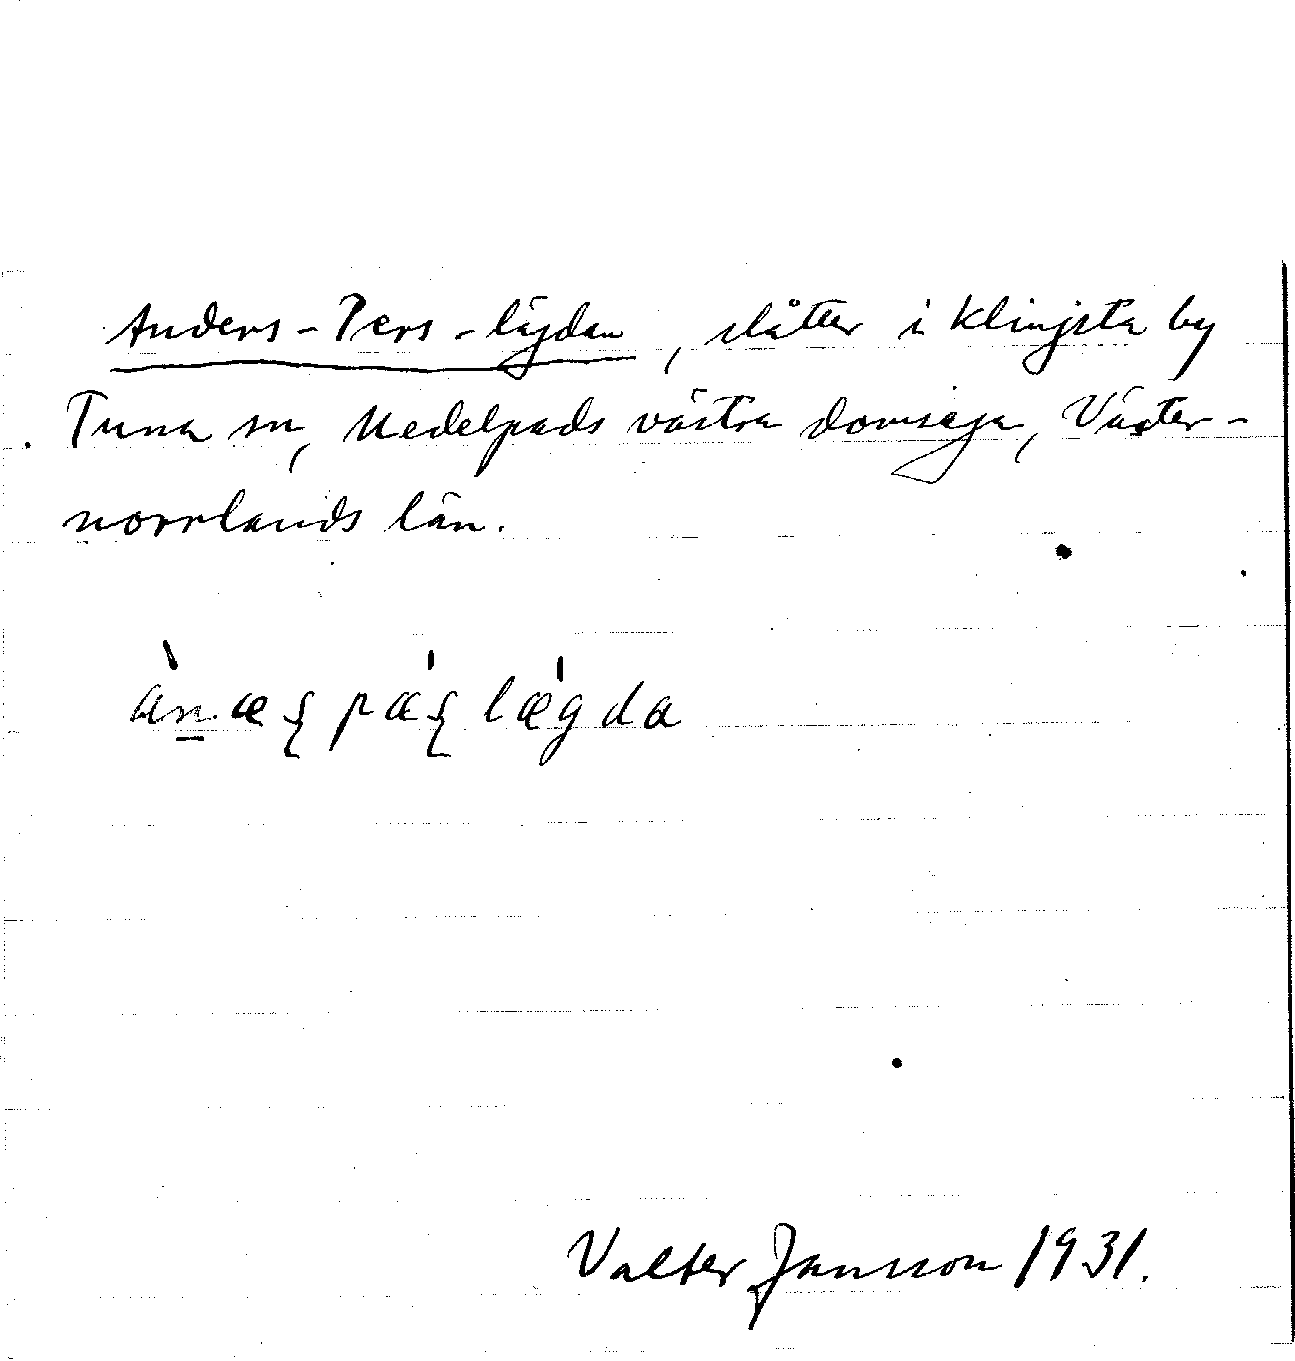 Anders-Pers-lägdan, slåtter i Klingsta by
Tuna sn, Medelpads västra domsaga, Väster-
norrlands län.
ànæʂ pǽʂ lǽgda
Valter Jansson 1931.